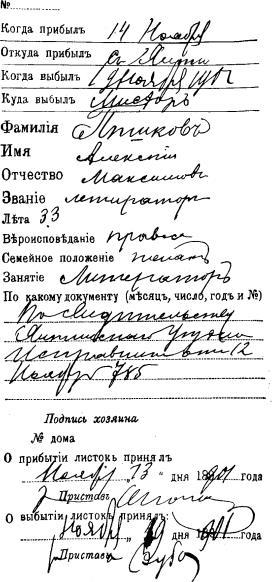 №
Когда прибылъ 14 Ноября
Откуда прибылъ съ Ялты
Когда выбылъ Ноября 1901
Куда выбылъ
Фамилія Пѣшковъ
Имя Алексѣй
Отчество Максимовъ
Званіе литераторъ
Лѣта 33
Вѣроисповѣданіе правосл
Семейное положеніе женатъ
Занятіе Литераторъ
По какому документу (мѣсяцъ, число, годъ и №)
По свидѣтельству
Ялтинскаго Уѣздн
Исправника отъ 12
Ноября 785
Подпись хозяина
№ дома
О прибытіи листокъ принялъ
Ноября „ 13 „ дня 1901 года
Приставъ
О выбытіи листокъ принялъ:
Ноября „ 19 „ дня 1901 года
Приставъ